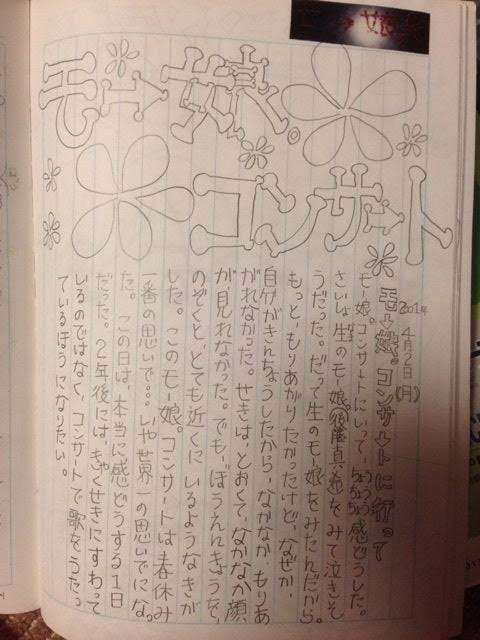 モー娘。
コンサート
2001年
4月2日
(月)
モー娘。コンサートに行って
モー娘。コンサートにいって、ちょうちょうちょう感どうした。
さいしょ生のモー娘。(後藤真希)をみて泣きそ
うだった。だって生のモー娘をみたんだから。
もっと、もりあがりたかったけど、なぜか、
自分がきんちょうしたから、なかなか、もりあ
がれなかった。せきは、とおくて、なかなか顔
が、見れなかった。でも、ぼうえんきょうを、
のぞくと、とても近くにいるようなきが
した。このモー娘。コンサートは春休み
一番の思いで…。いや世界一の思いでになっ
た。この日は、本当に感どうする1日
だった。2年後には、きゃくせきにすわって
いるのではなく、コンサートで歌をうたっ
ているほうになりたい。